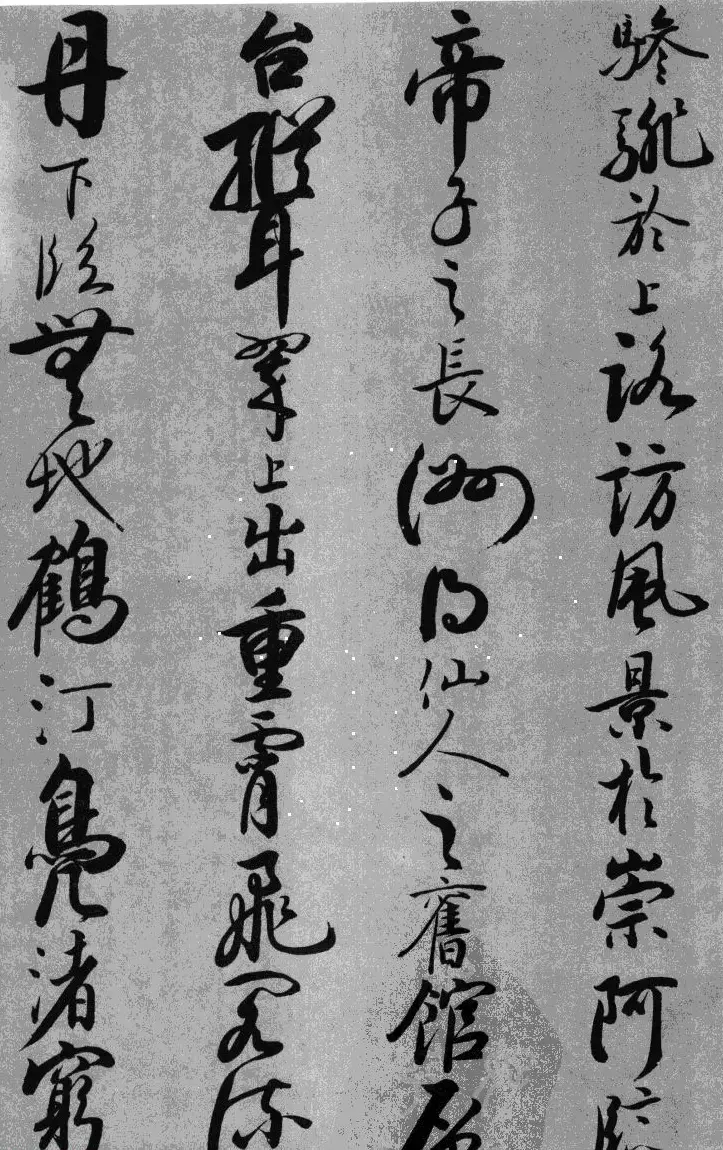 驂騑於上路訪風景於崇阿臨
帝子之長洲得仙人之舊館層
台聳翠上出重霄飛閣流
丹下臨無地鶴汀鳧渚窮